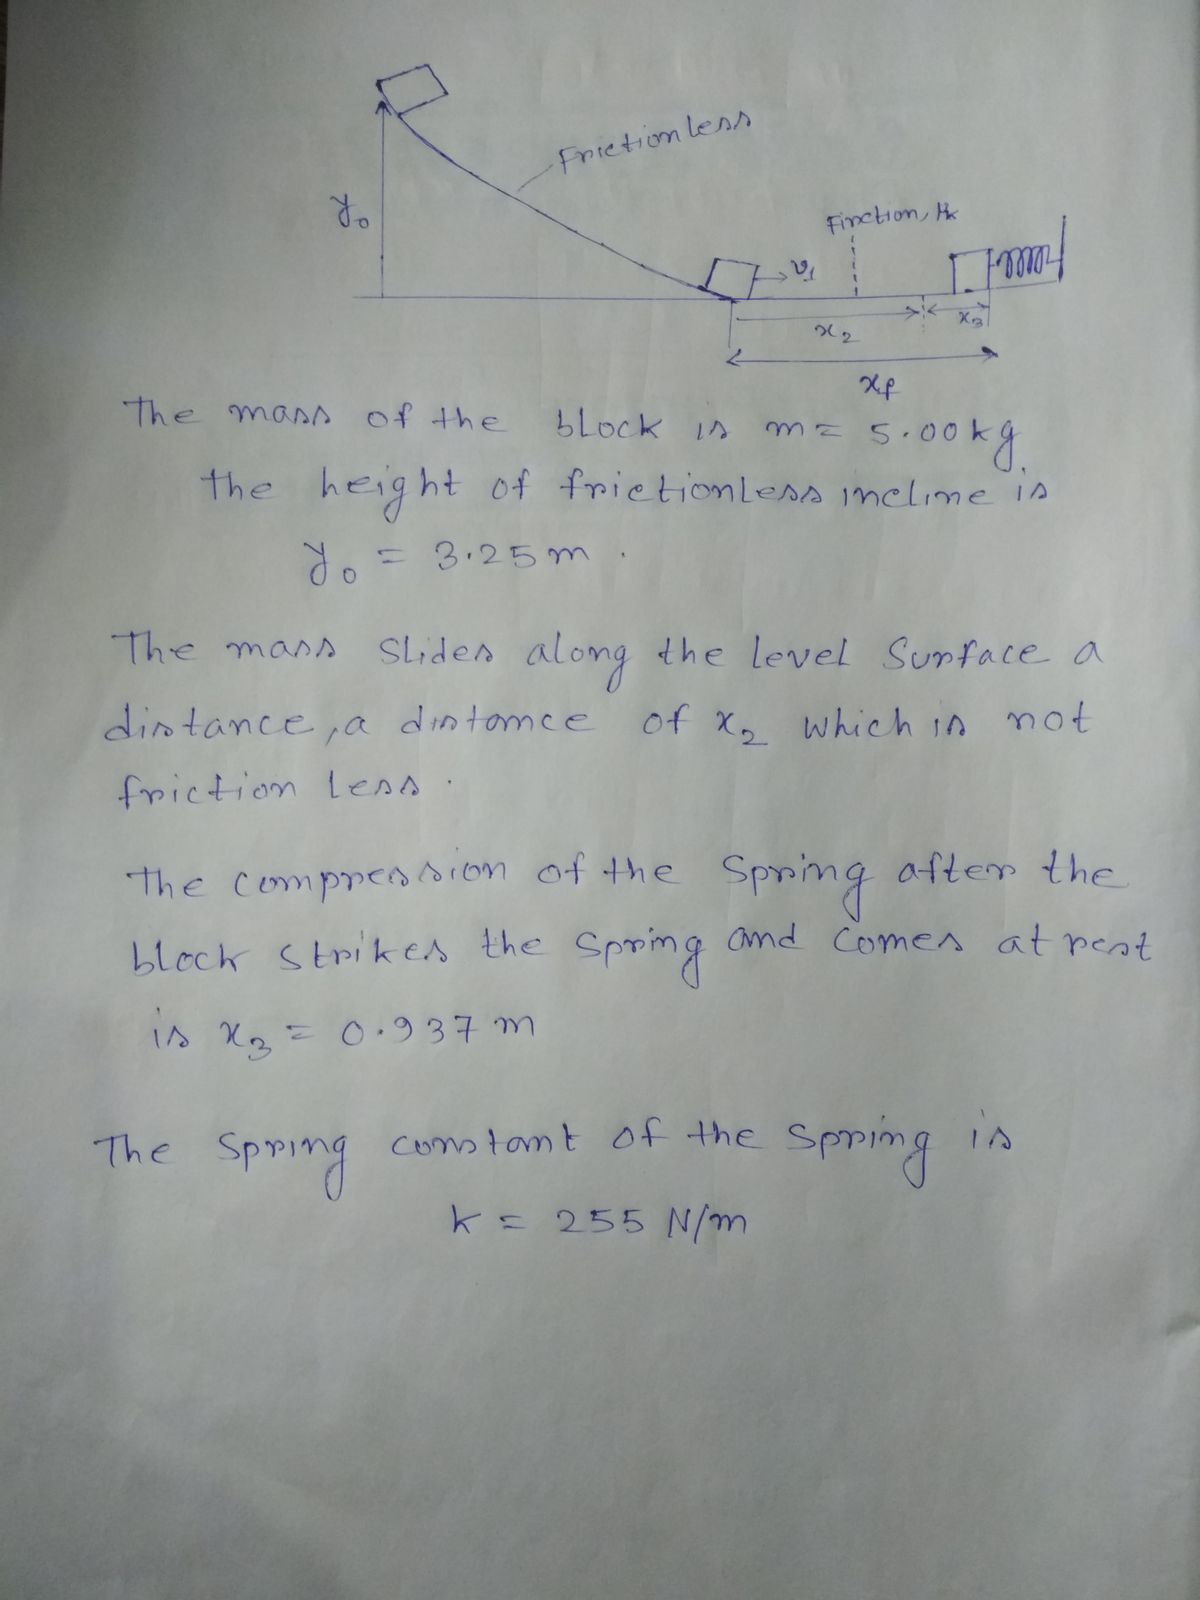 Frictionless
y₀
Finction, μk
v₁
x₂
x₃
xf
The mass of the block is m = 5.00kg
the height of frictionless incline is
y₀ = 3.25m .
The mass slides along the level Surface a
distance, a distance of x₂ which is not
friction less .
the compression of the Spring after the
block strikes the spring and comes at rest
is x₃ = 0.937 m
The Spring constant of the spring is
k = 255 N/m